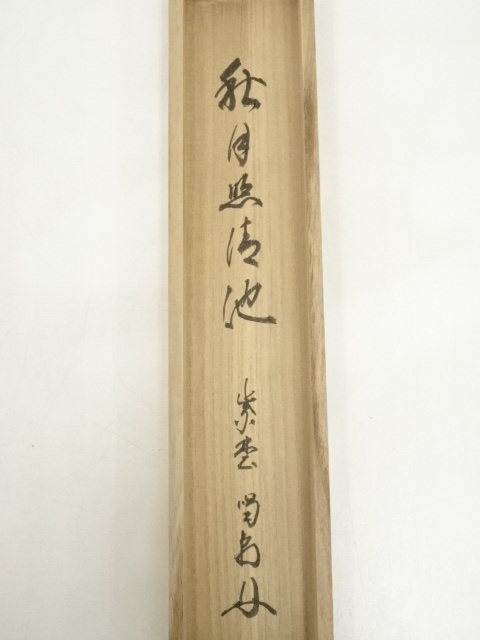 秋月照清池
紫野